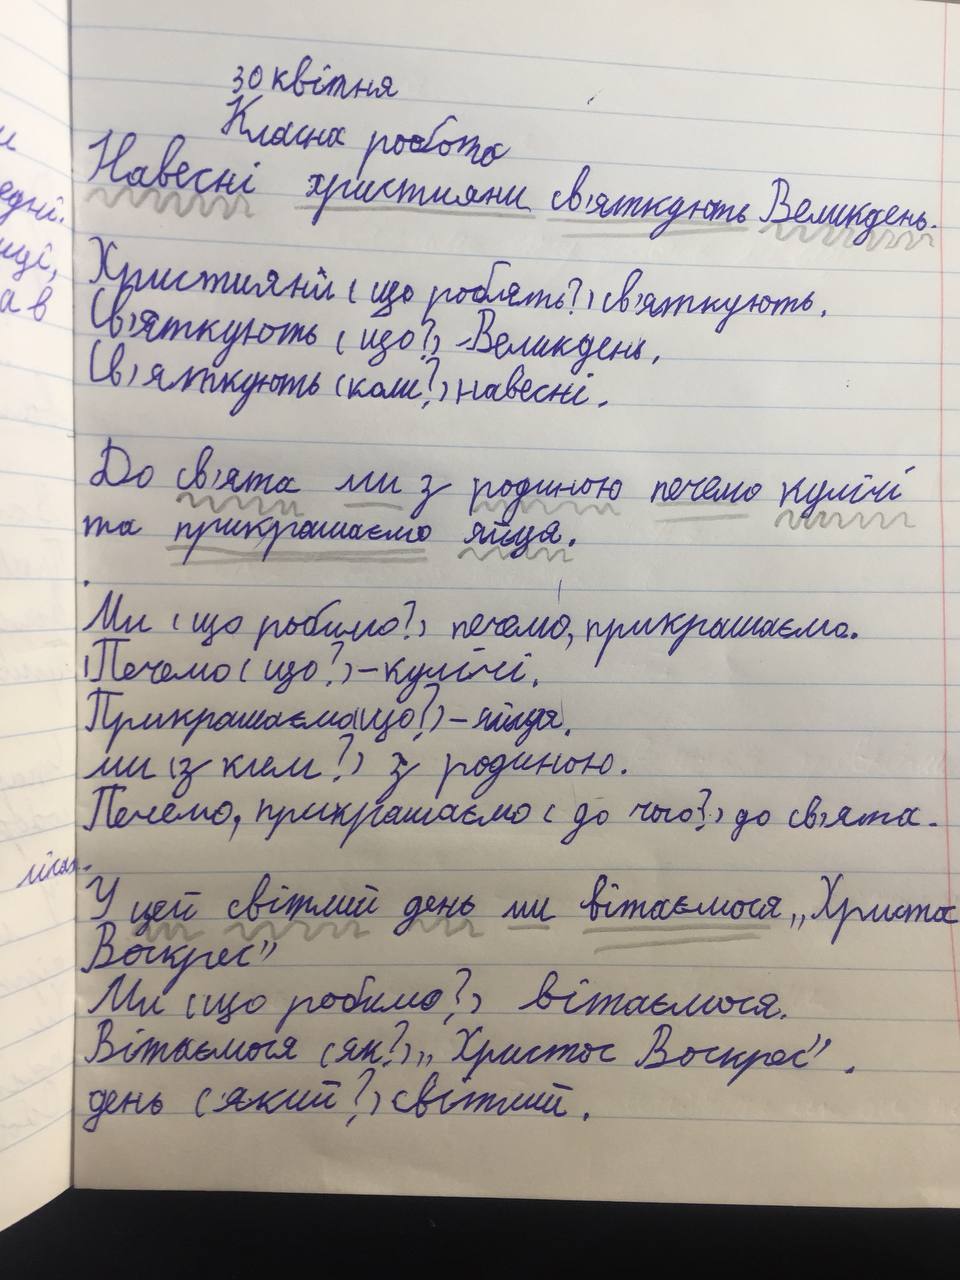 30 квітня
Класна робота
Навесні християни св'яткують Великдень.
Християни (що роблять?) св'яткують.
Св'яткують (що?) - Великдень.
Св'яткують (коли?) навесні.
До св'ята ми з родиною печемо кулічі
та прикрашаємо яйця.
Ми (що робимо?) печемо, прикрашаємо.
Печемо (що?) - кулічі.
Прикрашаємо (що?) - яйця.
ми (з ким?) з родиною.
Печемо, прикрашаємо (до чого?) до св'ята.
У цей світлий день ми вітаємося „Христос
Воскрес"
Ми (що робимо?) вітаємося.
Вітаємося (як?) „Христос Воскрес".
день (який?) світлий.